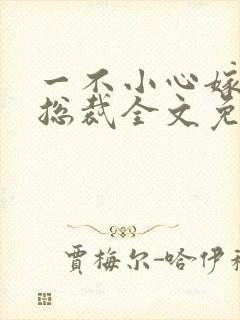 一不小心嫁
总裁全文免
贾梅尔-哈伊